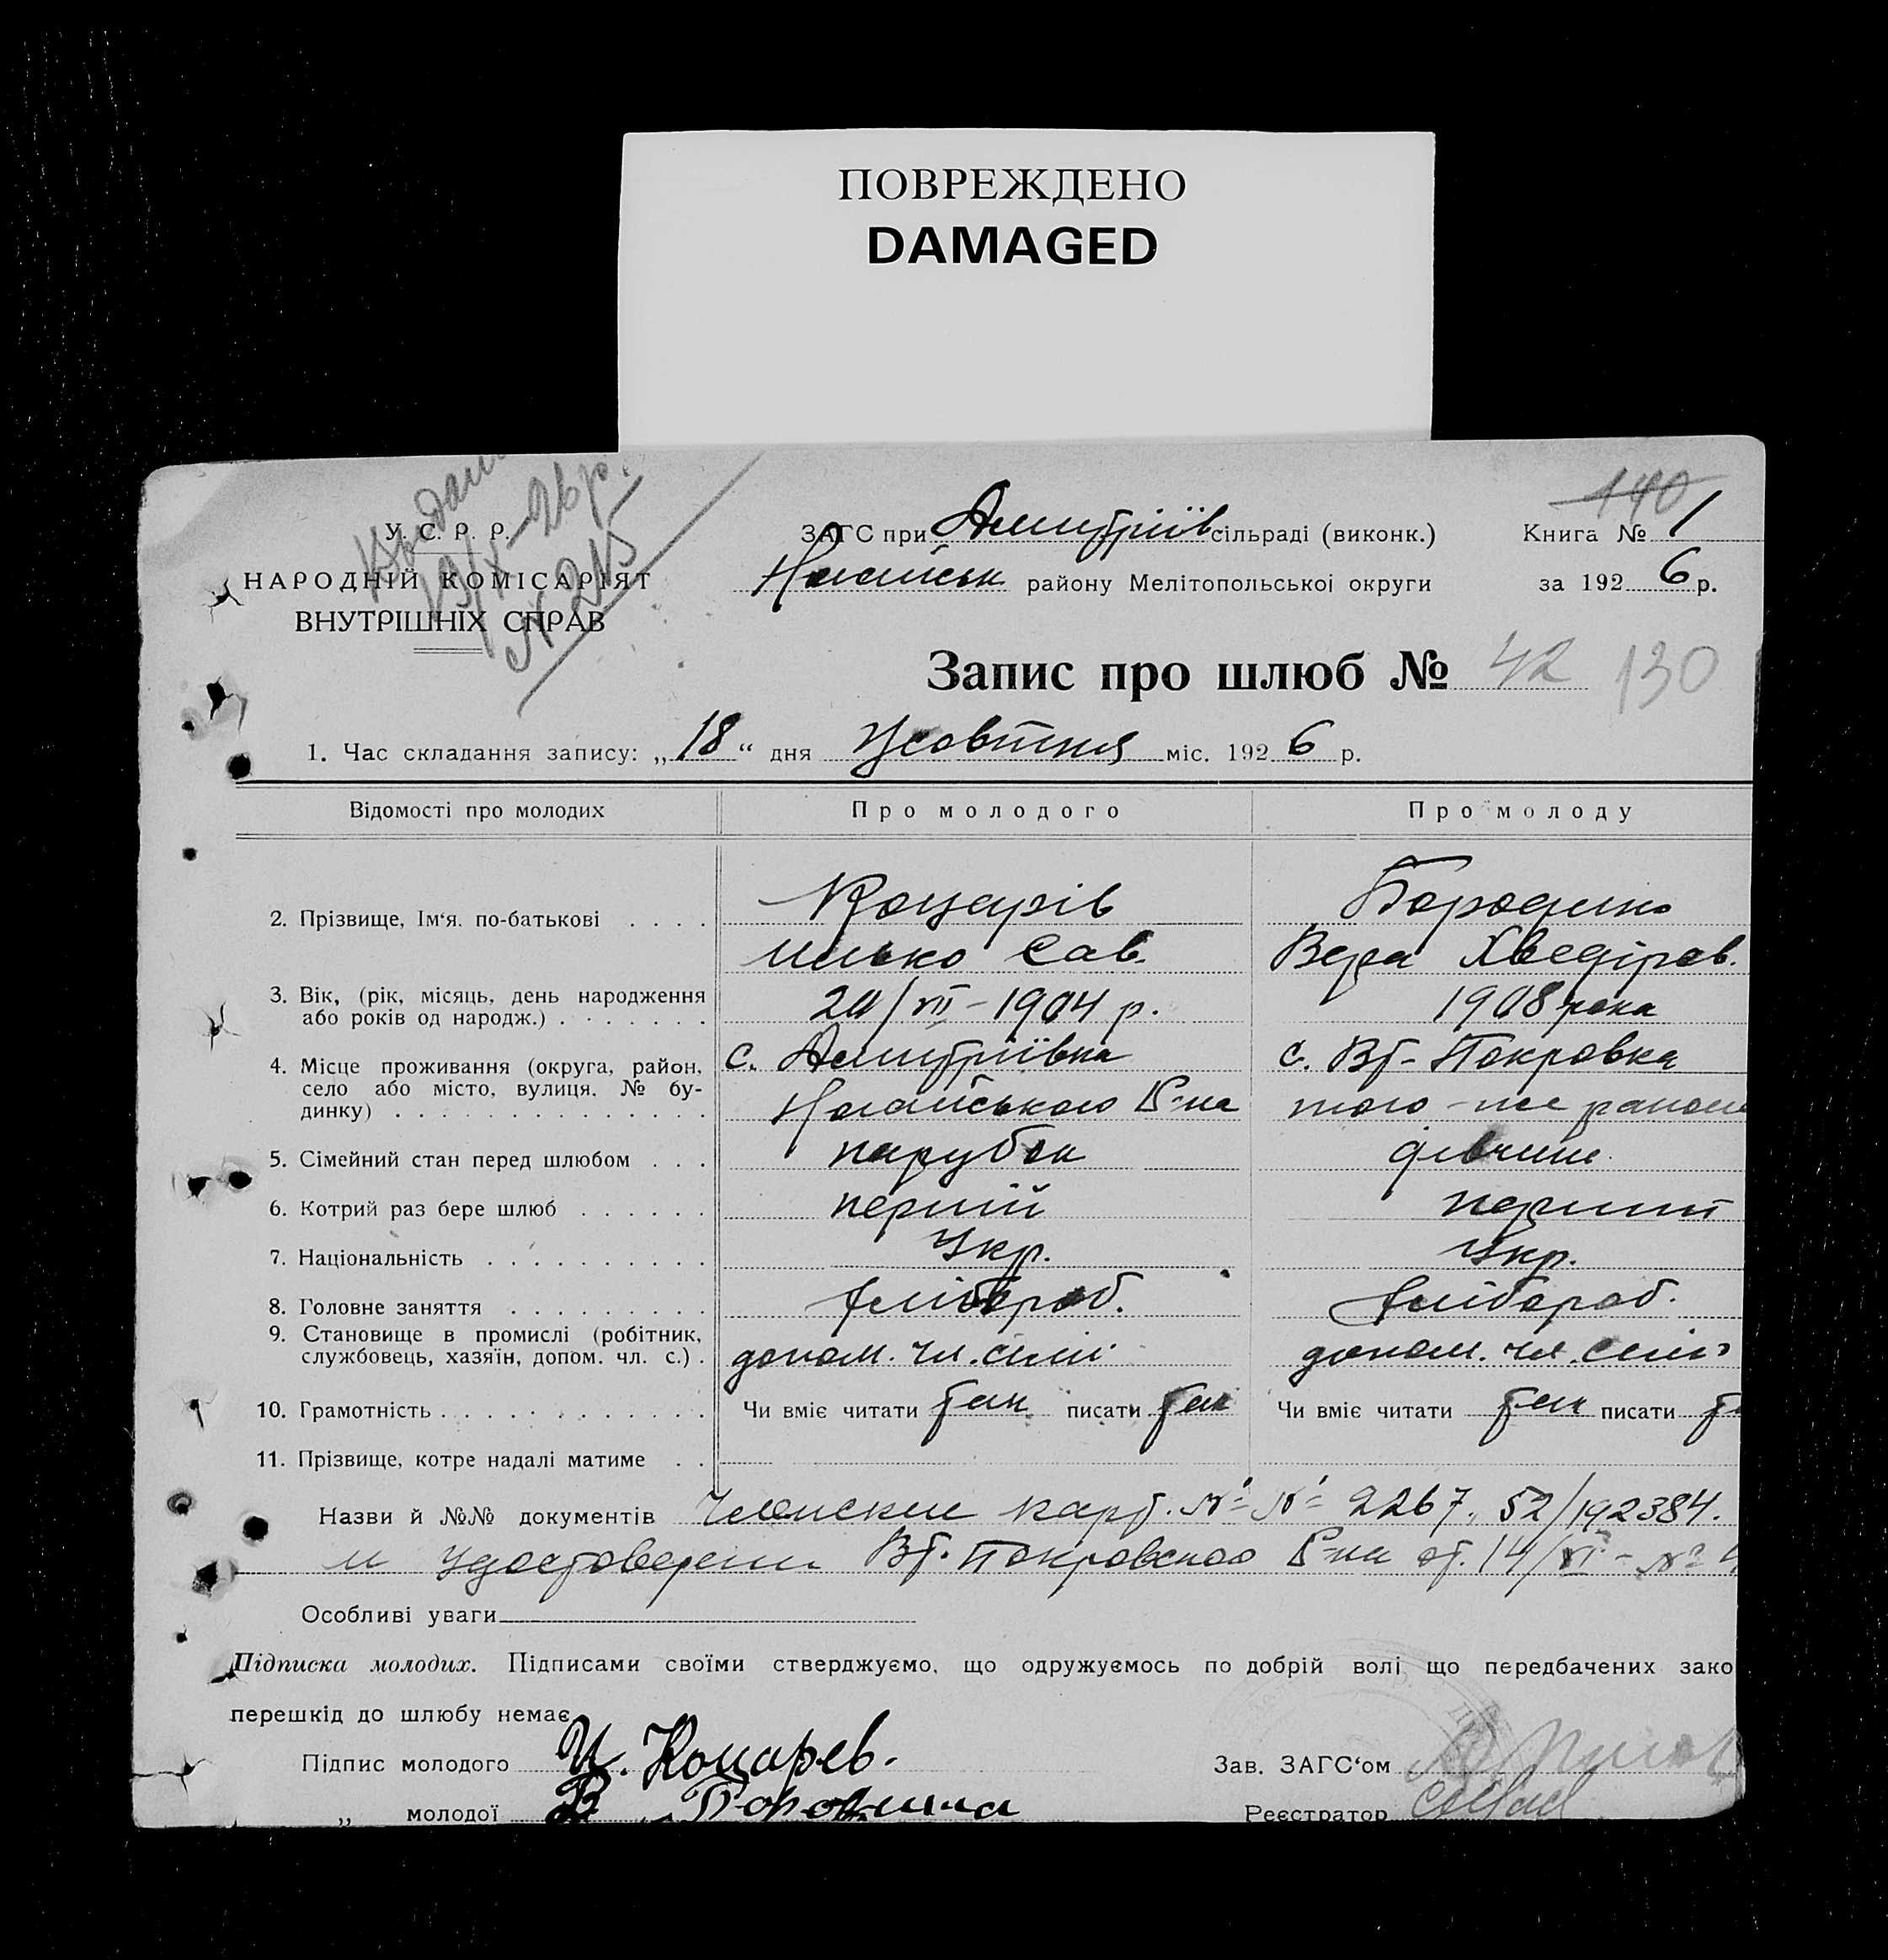 ПОВРЕЖДЕНО
DAMAGED
140
У. С. Р. Р.
НАРОДНІЙ КОМІСАРІЯТ
ВНУТРІШНІХ СПРАВ
№ 215
ЗАГС при Дмитріїв сільраді (виконк.)
Книга № 1
Ногайськ району Мелітопольськоі округи
за 192 6 р.
Запис про шлюб № 42 130
1. Час складання запису: „ 18 “ дня Жовтня міс. 192 6 р.
Відомості про молодих Про молодого Про молоду
2. Прізвище, Ім‘я. по-батькові . . . . Коцарів Бородина
Илько Сав. Вера Хведіров.
3. Вік, (рік, місяць, день народження
або років од народж.) . . . . . . . 20/VII – 1904 р. 1908 рока
4. Місце проживання (округа, район,
село або місто, вулиця, № бу-
динку) . . . . . . . . . . . . . .
с. Дмитріївка с. Вт-Покровка
Ногайського Р-на того-же району
5. Сімейний стан перед шлюбом . . . парубок дівчина
6. Котрий раз бере шлюб . . . . . . перший перший
7. Національність . . . . . . . . . . Укр. Укр.
8. Головне заняття . . . . . . . . . хлібороб. хлібороб.
9. Становище в промислі (робітник,
службовець, хазяїн, допом. чл. с.) . допом. чл. сімї допом. чл. сімї
10. Грамотність . . . . . . . . . . . . Чи вміє читати так писати так Чи вміє читати так писати
11. Прізвище, котре надалі матиме . .
Назви й №№ документів Членские карт. № № 2267, 52/192384.
и Удостоверени Вт. Покровского Р-на от. 14/VI – №
Особливі уваги
Підписка молодих. Підписами своїми стверджуємо, що одружуємось по добрій волі що передбачених зако
перешкід до шлюбу немає
Підпис молодого И. Коцарев.
Зав. ЗАГС‘ом
„ молодої В. Бородина
Реєстратор